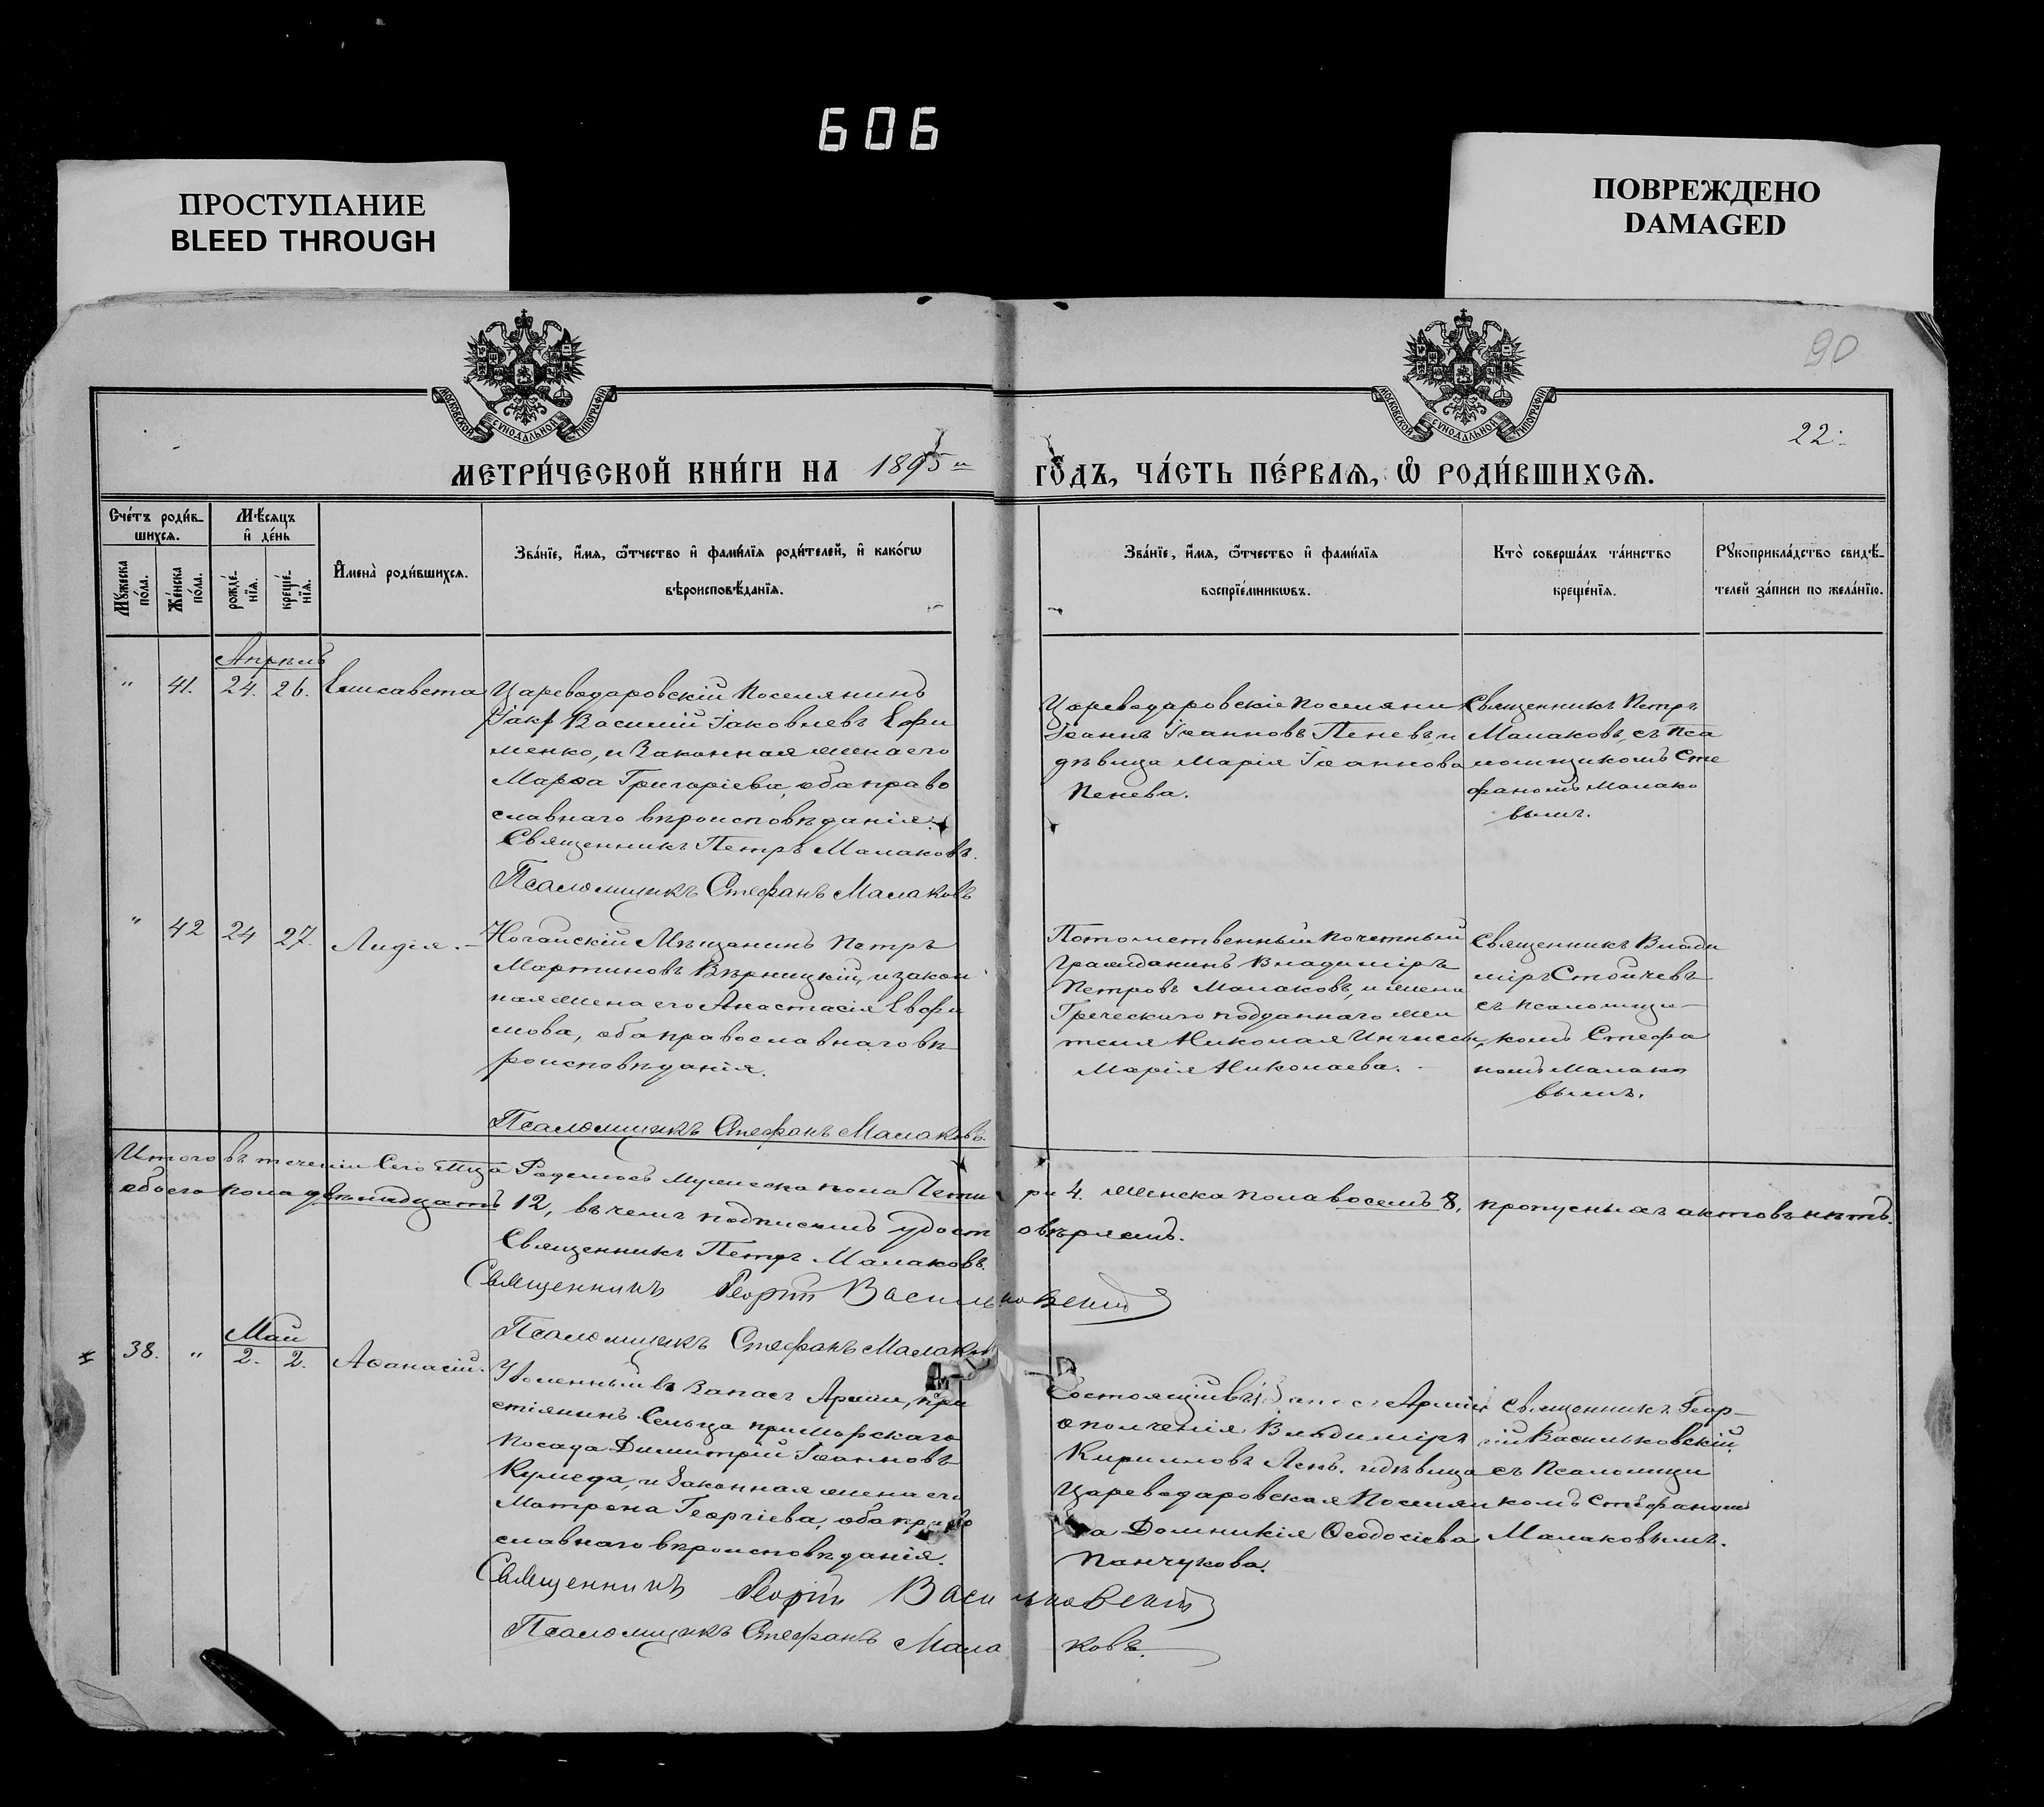 606
ПРОСТУПАНИЕ
BLEED THROUGH
ПОВРЕЖДЕНО
DAMAGED
90
22.
МОСКОВСКОЙ СУНОДАЛЬНОЙ ТИПОГРАФІИ
МОСКОВСКОЙ СУНОДАЛЬНОЙ ТИПОГРАФІИ
МЕТРИ́ЧЕСКОЙ КНИ́ГИ НА 1895 ГО́ДЪ, ЧА́СТЬ ПЕ́РВАЯ, Ѡ РОДИ́ВШИХСЯ.
Сче́тъ роди́в-
шихся.
Му́жеска по́ла.
Же́нска по́ла.
Мѣ́сяцъ
и де́нь
рожде́-
нїя.
креще́-
нїя.
Имена̀ роди́вшихся.
Зва́нїе, и́мя, ѻ́тчество и фами́лїя роди́телей, и како́гѡ
вѣроисповѣ́данїя.
Зва́нїе, и́мя, ѻ́тчество и фами́лїя
воспрїе́мникѡвъ.
Кто̀ соверша́лъ та́инство
креще́нїя.
Рꙋкоприкла́дство свидѣ́-
телей за́писи по жела́нїю.
Апрѣль
" 41. 24. 26. Елисавета
Цареводаровскій Поселянинъ
Василій Іаковлевъ Ефи
менко, и Законная жена его
Марѳа Григоріева, оба право
славнаго вѣроисповѣданія.
Священникъ Петръ Малаковъ.
Псаломщикъ Стефанъ Малаковъ
Цареводаровскіе Поселяни
Іоаннъ Іоанновъ Пеневъ, и
дѣвица Марія Іоаннова
Пенева.
Священникъ Петръ
Малаковъ, съ Пса
ломщикомъ Сте
фаномъ Малако
вымъ.
" 42 24 27. Лидія.
Ногайскій Мѣщанинъ Петръ
Мартиновъ Вѣрницкій, и закон
ная жена его Анастасія Евфи
мова, оба православнаго вѣ
роисповѣданія.
Псаломщикъ Стефанъ Малаковъ.
Потомственный почетный
Гражданинъ Владиміръ
Петровъ Малаковъ, и жена
Греческаго подданнаго
Николая
Марія Николаева.
Священникъ Влади
міръ Стойчевъ
съ псаломщи-
комъ Стефа
номъ Малако
вымъ.
Итого въ теченіи Сего М-ца Родилось Мужеска пола Четыри 4. Женска пола восемъ 8, пропусныхъ актовъ нѣтъ.
обоего пола двѣнадцать 12, въ чемъ подписомъ удостовѣряемъ.
Священникъ Петръ Малаковъ.
Священникъ Георгій Васильковскій
Псаломщикъ Стефанъ Малаковъ
Май
38. " 2. 2. Аѳанасій.
Уволенный въ Запасъ Арміи, кре
стіянинъ Сельца приморскаго
посада Димитрій Іоанновъ
Кумеда, и Законная жена его
Матрона Георгіева, оба право
славнаго вѣроисповѣданія.
Священникъ Георгій Васильковскій
Псаломщикъ Стефанъ Малаковъ.
Состоящій въ Запасѣ Арміи
ополченія Владиміръ
Кирилловъ Лень. и дѣвица
Цареводаровская Поселян
ка Домникія Ѳеодосіева
Панчукова.
Священникъ Геор-
гій Васильковскій
съ Псаломщи
комъ Стефаномъ
Малаковымъ.